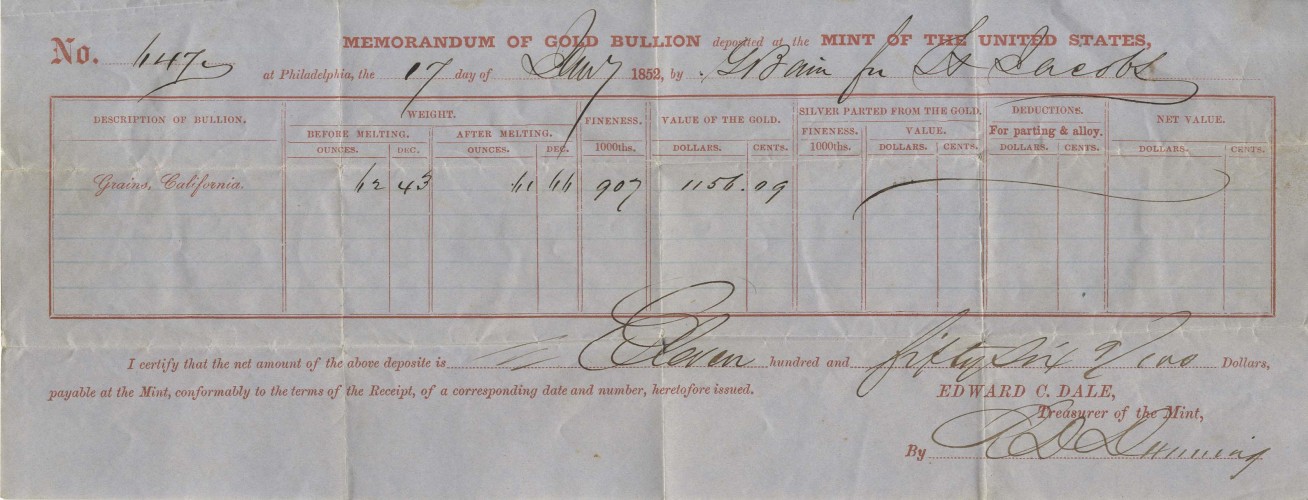 No. 647 MEMORANDUM OF GOLD BULLION deposited at the MINT OF THE UNITED STATES,
at Philadelphia, the 17 day of Jany 1852, by G Bain for Jacobs
DESCRIPTION OF BULLION. WEIGHT. FINENESS. VALUE OF THE GOLD. SILVER PARTED FROM THE GOLD. DEDUCTIONS. NET VALUE.
BEFORE MELTING. AFTER MELTING. 1000ths. FINENESS. VALUE. For parting & alloy.
OUNCES. DEC. OUNCES. DEC. DOLLARS. CENTS. 1000ths. DOLLARS. CENTS. DOLLARS. CENTS. DOLLARS. CENTS.
Grains, California. 62 43 61 66 907 1156.09
I certify that the net amount of the above deposite is Eleven hundred and fifty six 9/100 Dollars,
payable at the Mint, conformably to the terms of the Receipt, of a corresponding date and number, heretofore issued. EDWARD C. DALE,
Treasurer of the Mint,
By Dunning